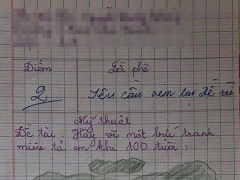 Điểm Lời phê
2 Yêu cầu xem lại đề tài
Mỹ thuật
Đề tài: Hãy vẽ một bức tranh
miêu tả em khi 100 tuổi.